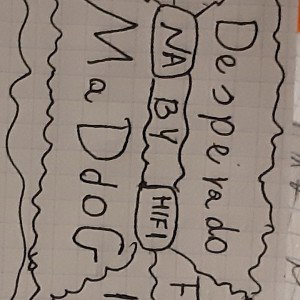 Desperado
NA BY HIFI
MaDdoG